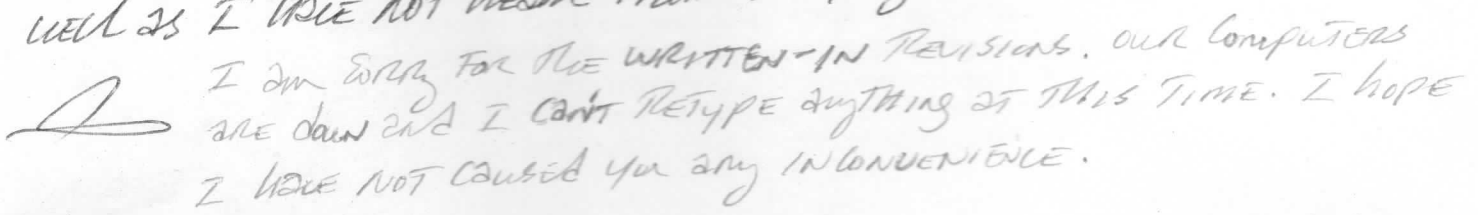 well as I have not
I am sorry for the WRITTEN-IN Revisions. Our Computers
are down and I can't Retype anything at This Time. I hope
I have not caused you any inconvenience.